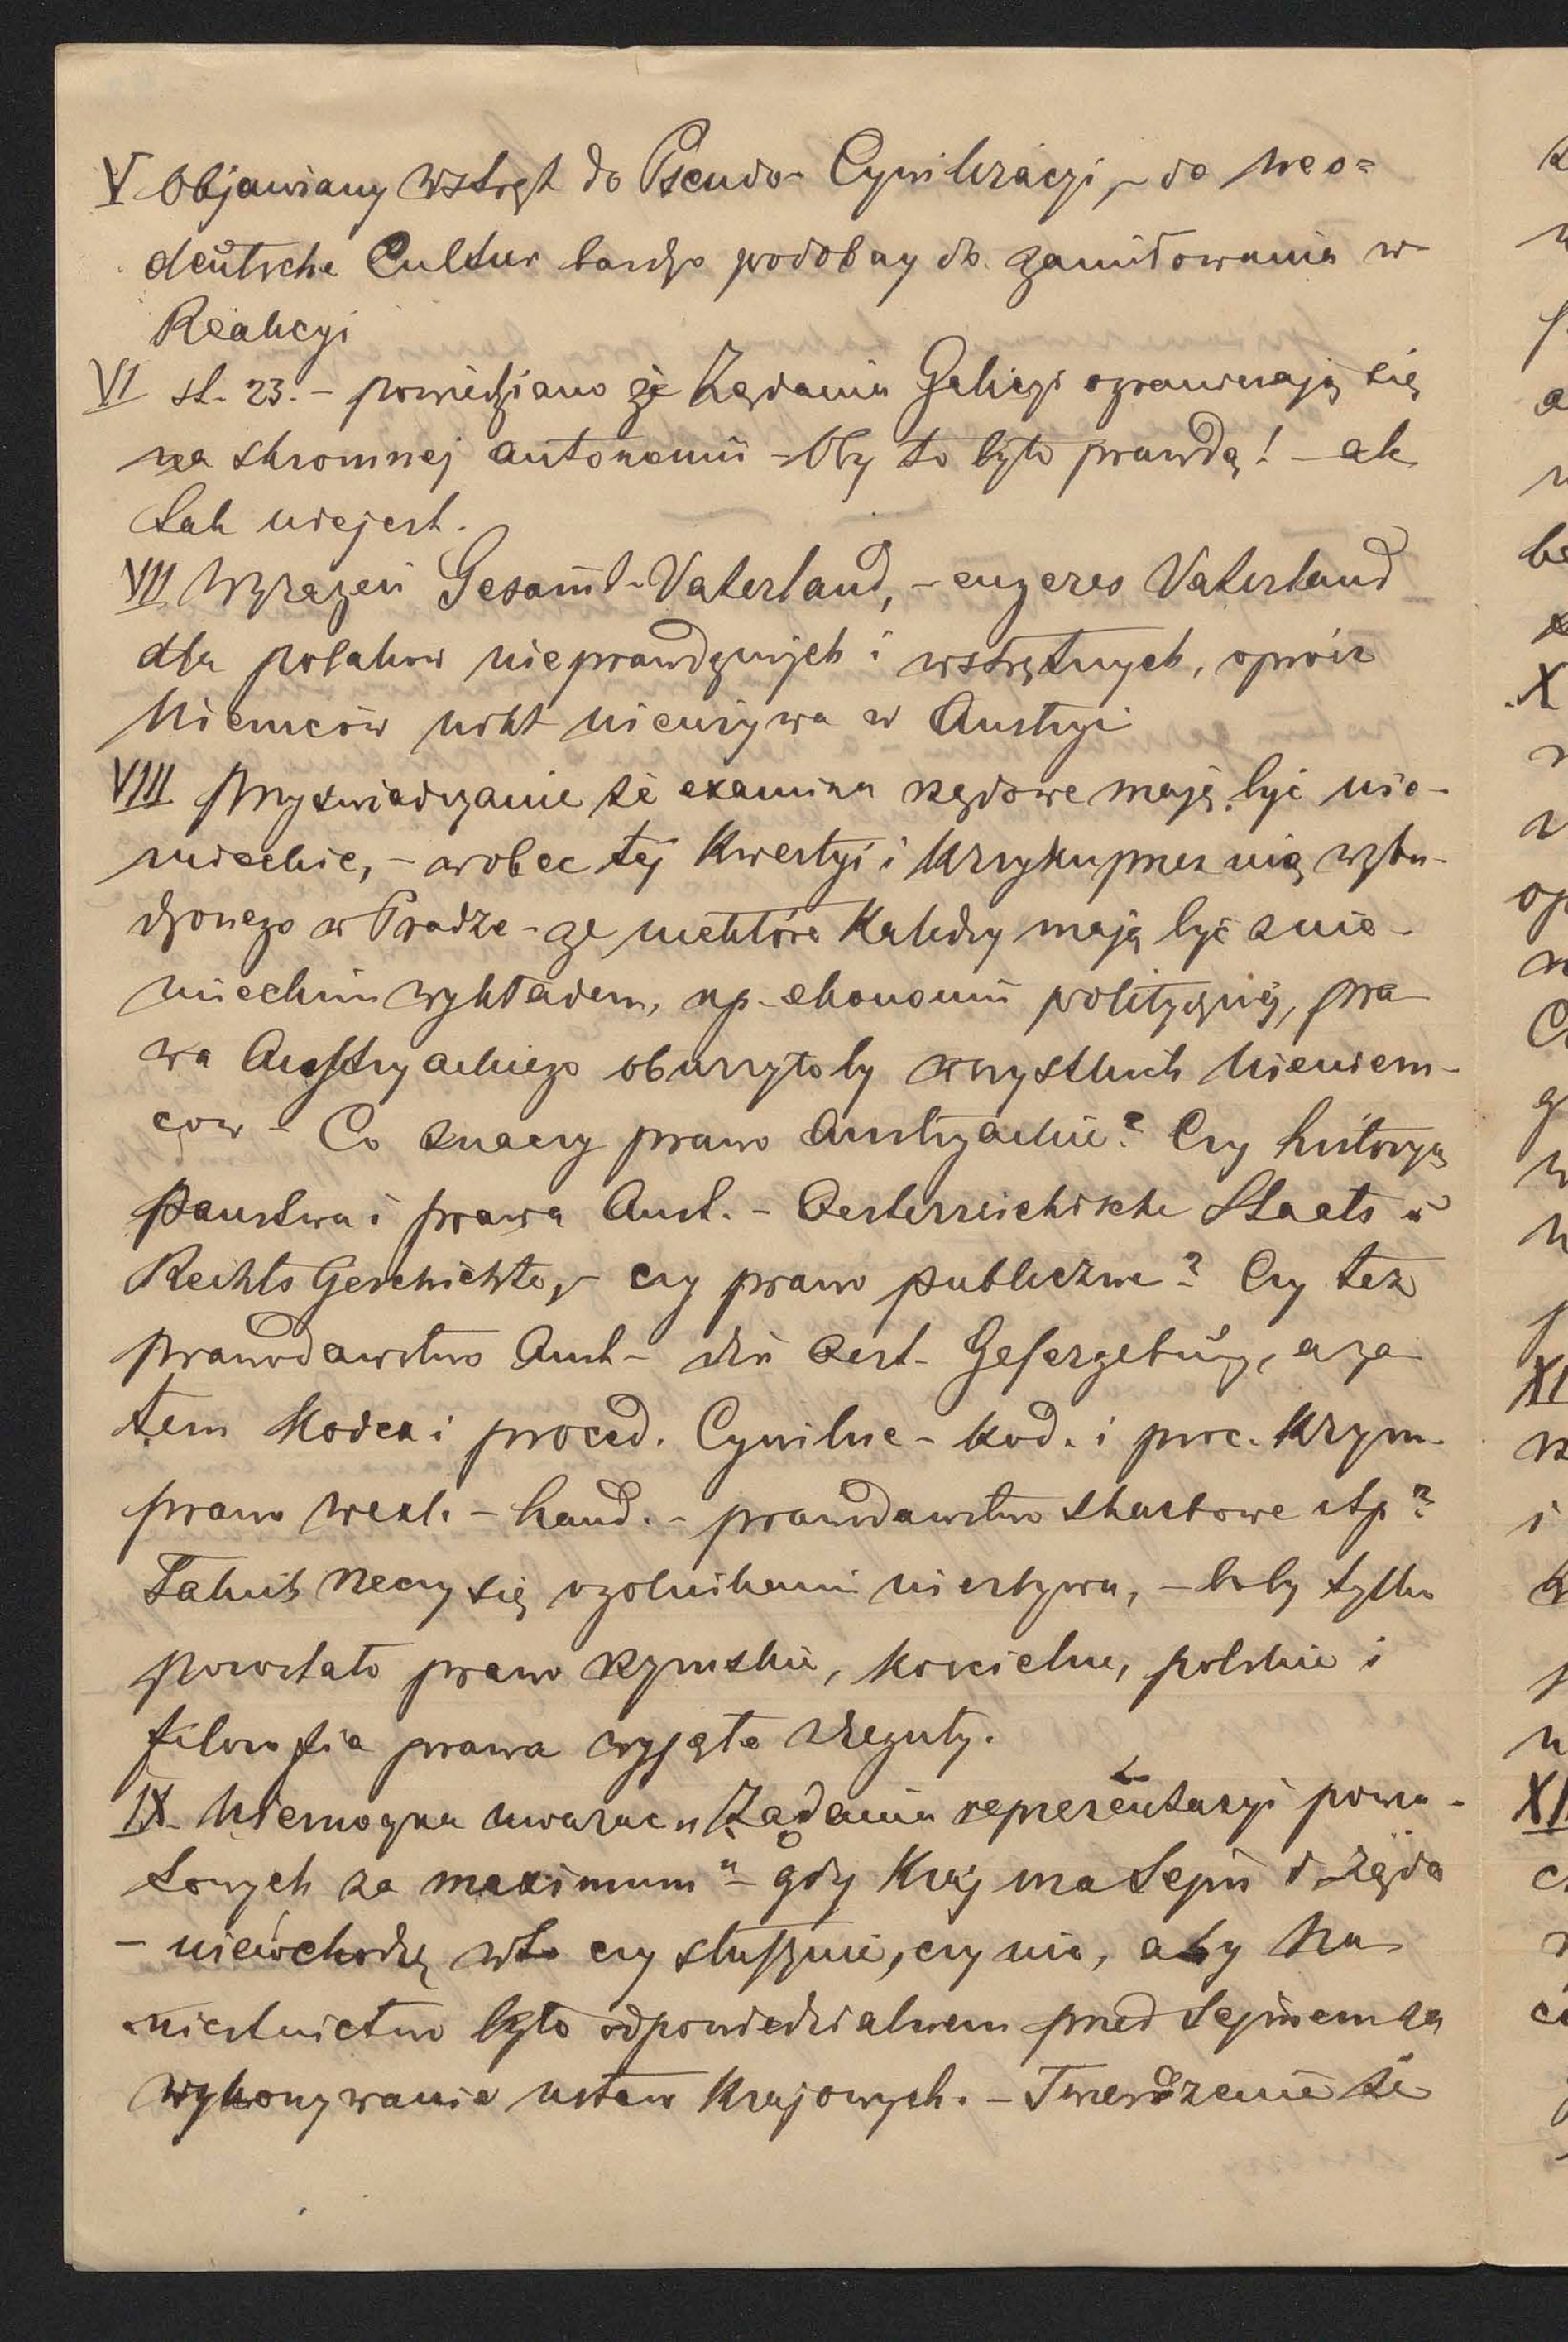 V Objawiany wstręt do Pseudo-Cywilizacyi, – do neo=
deutsche Cultur bardzo podobny do zamiłowania w
Reakcyi
VI st. 23. – powiedziano że Żądania Galicyi ograniczają się
na skromnej autonomii – Oby to było prawdą! – ale
tak niejest.
VII Wyrażeń Gesammt-Vaterland, – engeres Vaterland
dla polakow nieprawdziwych i wstrętnych, oprócz
Niemców nikt nieużywa w Austryi
VIII Przyświadczanie że examina rządowe mają być nie-
mieckie, – wobec tej Kwestyi i Krzyku przez nią wzbu-
dzonego w Pradze – że niektóre Katedry mają być z nie-
mieckim wykładem, np. ekonomii politycznéj, pra
wa Austryackiego oburzyłoby wszystkich Nieniem-
cow – Co znaczy prawo Austryackie? Czy historya
państwa i prawa Aust. – Oesterreichische Staats u
Rechts Geschichte, – czy prawo publiczne? Czy też
prawodawstwo Aust – die oest. Gesezgebung, a za
tem Kodex i proced. Cywilne – kod. i proc. Krym.
prawo wexl. – hand. – prawodawstwo skarbowe itp?
Takich rzeczy się ogólnikami niezbywa, – boby tylko
pozostało prawo rzymskie, Kościelne, polskie i
filozofia prawa wyjęte z reguły.
IX Niemożna uważać „Żądania reprezentacyi powia-
towych za maximum" – gdy Kraj ma Sejm i żąda
– niewchodzę w to czy słusznie, czy nie, aby Na
miestnictwo było odpowiedzialnem przed Sejmem za
wykonywanie ustaw Krajowych. – Twierdzenie że